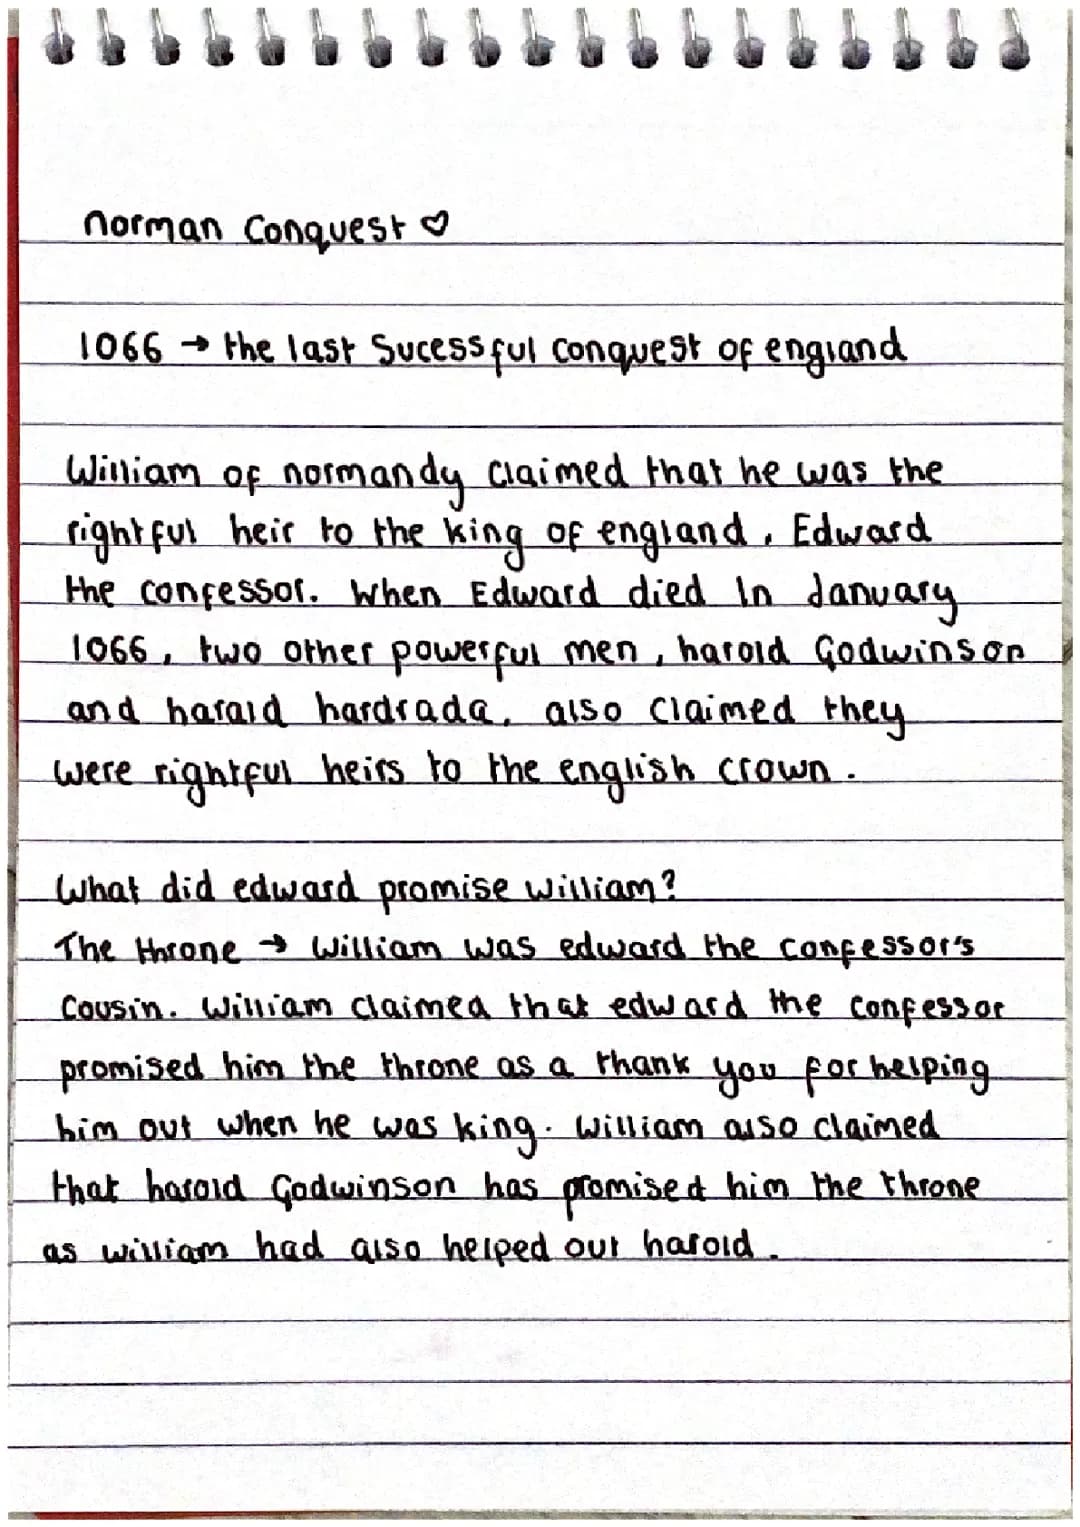 norman Conquest ♡
1066 → the last Sucessful conquest of england
William of normandy claimed that he was the
rightful heir to the king of england, Edward
the confessor. When Edward died In January
1066, two other powerful men, harold Godwinson
and harald hardrada, also claimed they
were rightful heirs to the english crown.
What did edward promise william?
The throne → William was edward the confessor's
Cousin. William claimed that edward the confessor
promised him the throne as a thank you for helping
him out when he was king. William also claimed
that harold Godwinson has promised him the throne
as william had also helped out harold.